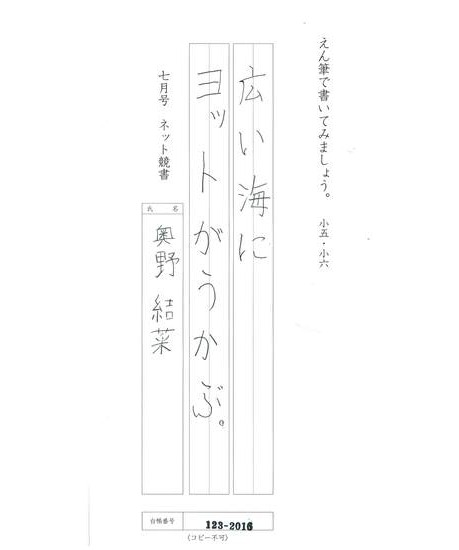 えん筆で書いてみましょう。　小五・小六
広い海に
ヨットがうかぶ。
七月号　ネット競書
氏名
奥野　結菜
台帳番号　123-2016
（コピー不可）